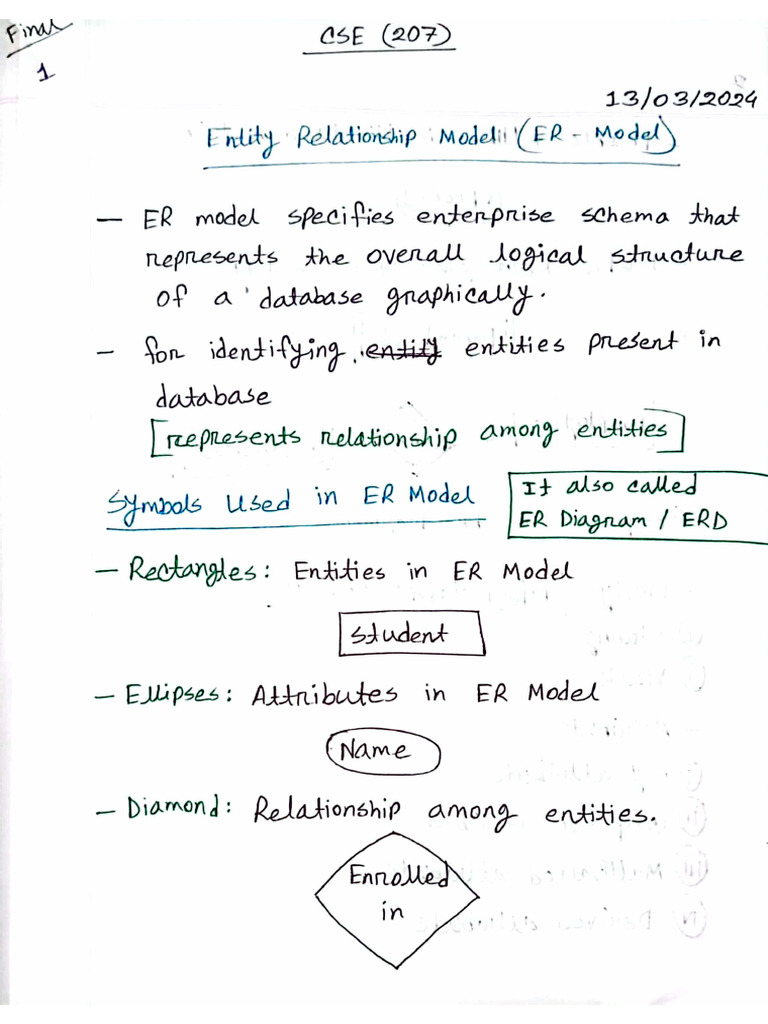 Final
CSE (207)
1
13/03/2024
Entity Relationship Model (ER - Model)
— ER model specifies enterprise schema that
represents the overall logical structure
of a database graphically.
- for identifying entity entities present in
database
[represents relationship among entities]
Symbols Used in ER Model
It also called
ER Diagram / ERD
— Rectangles: Entities in ER Model
Student
— Ellipses: Attributes in ER Model
Name
— Diamond: Relationship among entities.
Enrolled
in